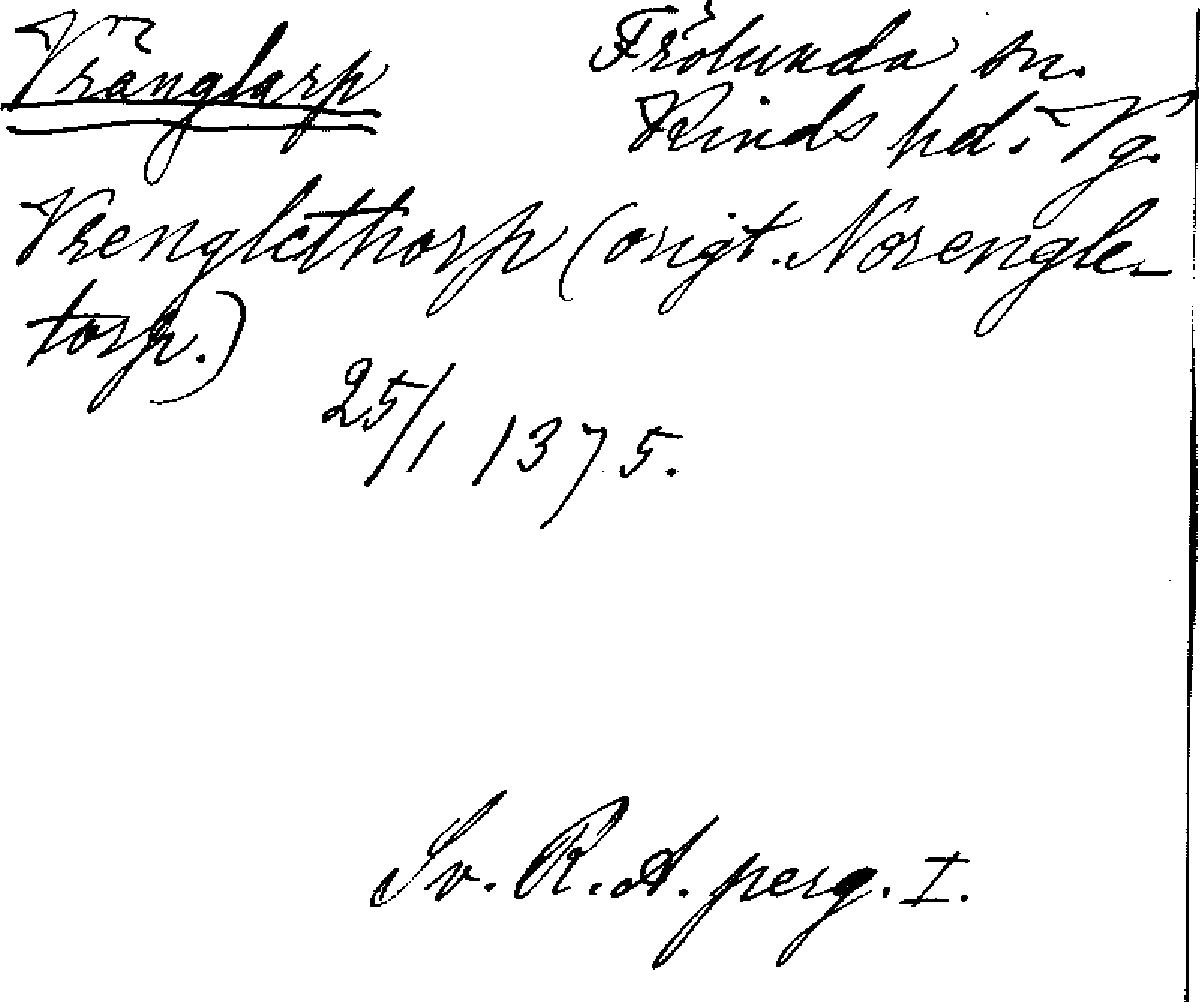 Vränglarp
Frölunda sn.
Kinds hd. Vg.
Vrenglethorp (origt. Norengle-
torp.)
25/1 1375.
Sv. R. A. perg. I.